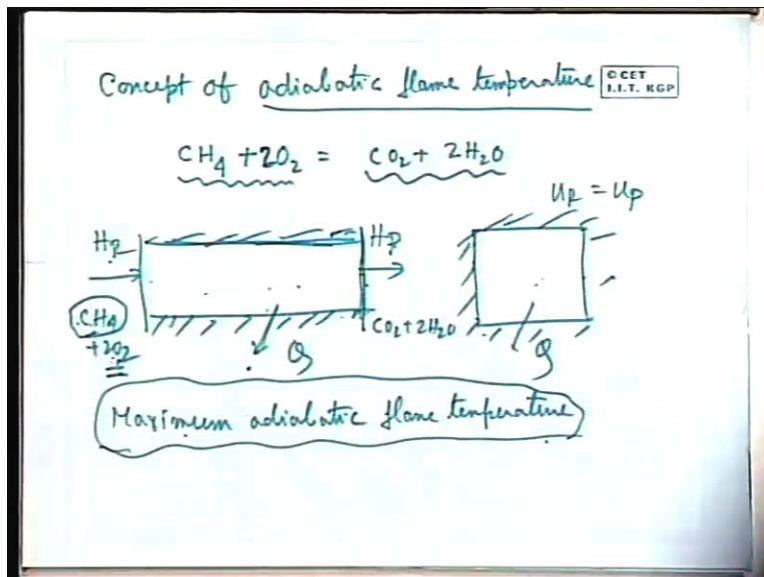 Concept of adiabatic flame temperature
© CET
I.I.T. KGP
CH4 + 2O2 = CO2 + 2H2O
UR = UP
HR
HP
CH4
+2O2
CO2 + 2H2O
Q
Q
Maximum adiabatic flame temperature